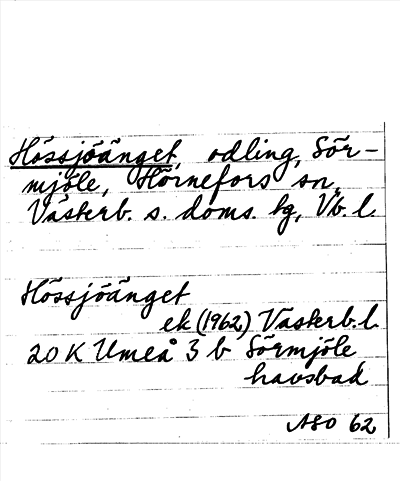 Hössjöänget, odling, Sör-
mjöle, Hörnefors sn,
Västerb. s. doms. hg, Vb. l.
Hössjöänget
ek (1962) Västerb. l.
20 K Umeå 3 b Sörmjöle
havsbad
ASO 62